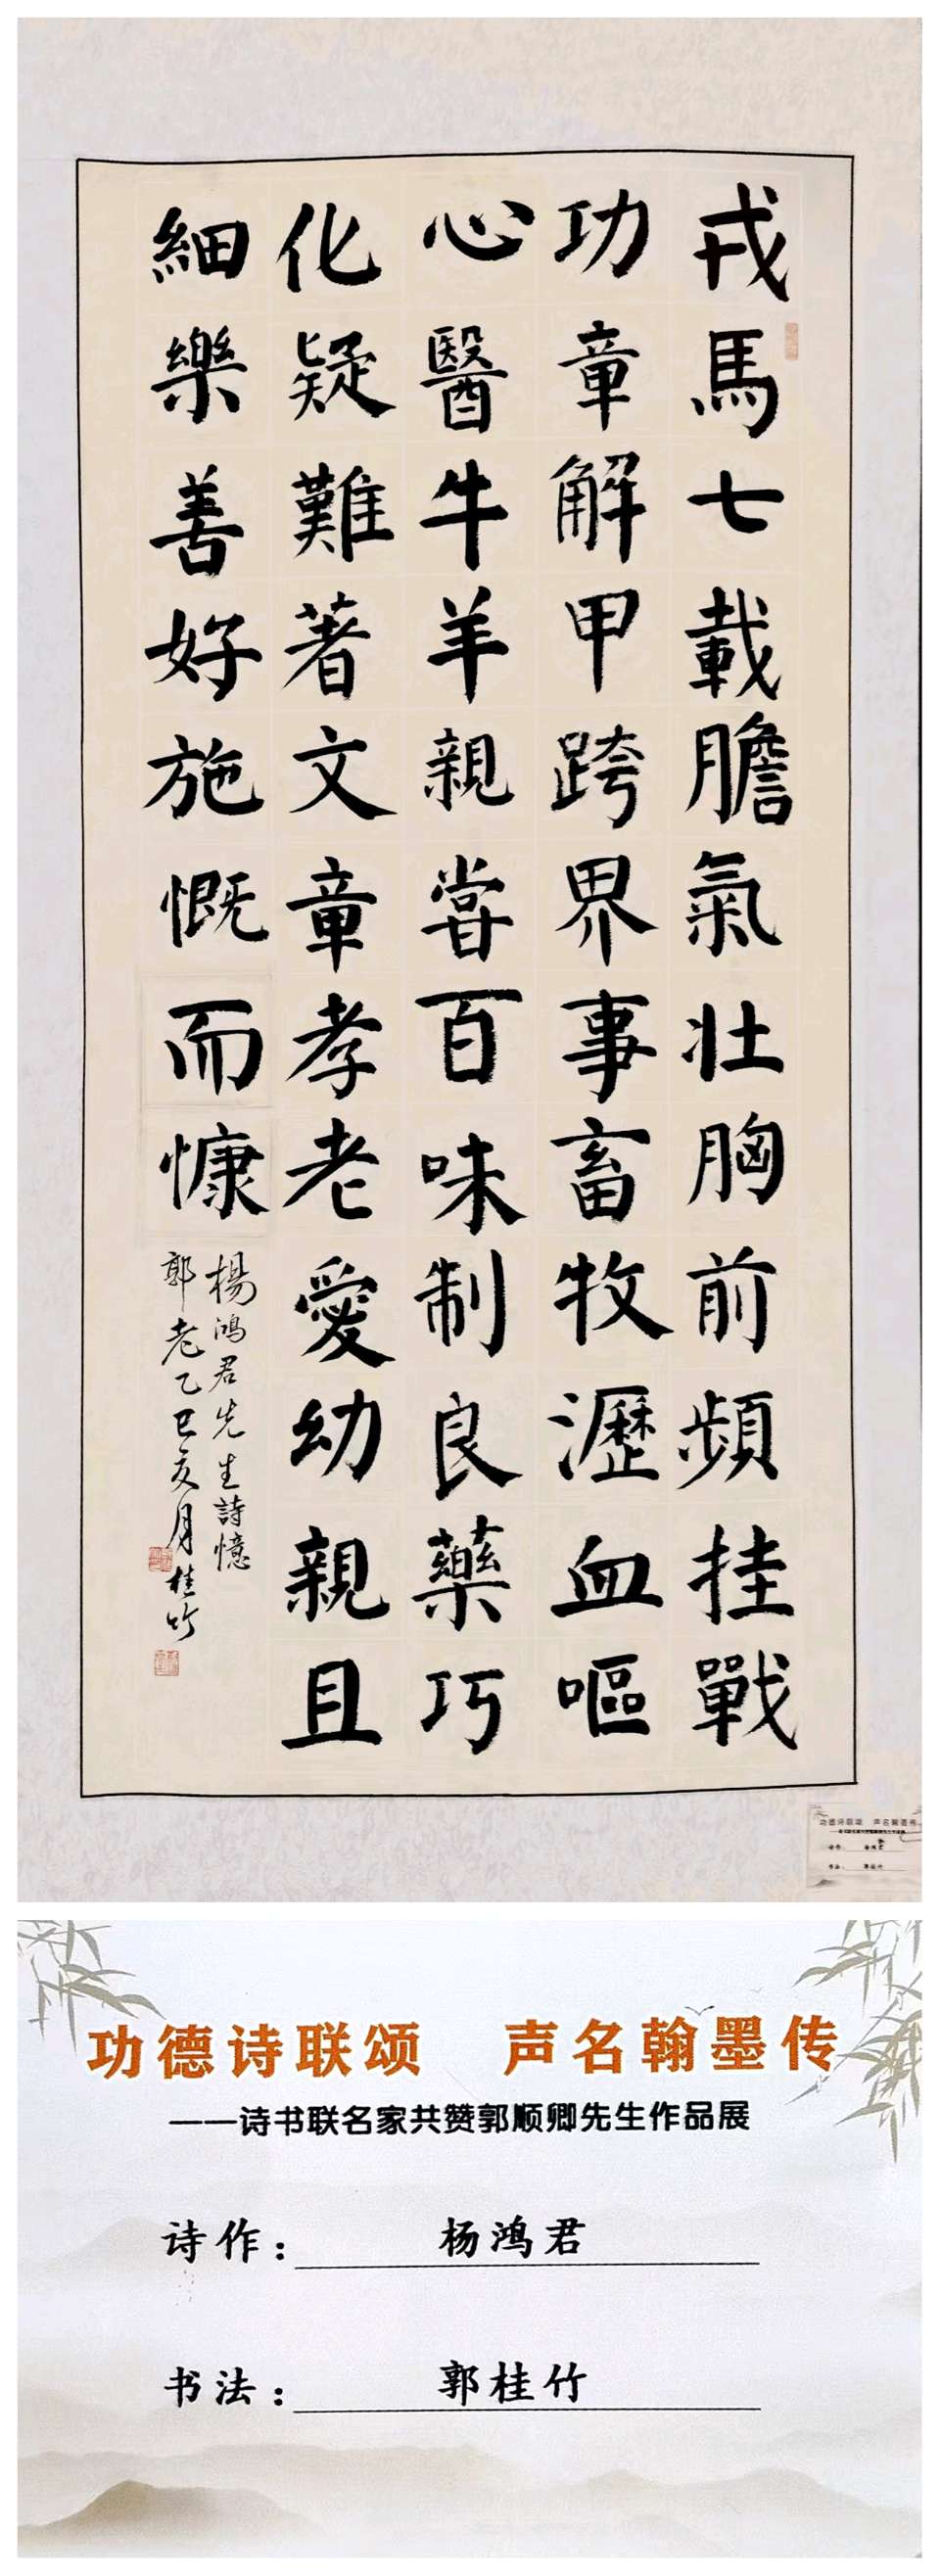 戎馬七載膽氣壯胸前頻挂戰
功章解甲跨界事畜牧瀝血嘔
心醫牛羊親嘗百味制良藥巧
化疑難著文章孝老愛幼親且
細樂善好施慨而慷
楊鴻君先生詩憶
郭老乙巳亥月桂竹
功德诗联颂 声名翰墨传
功德诗联颂 声名翰墨传
——诗书联名家共赞郭顺卿先生作品展
诗作：杨鸿君
书法：郭桂竹